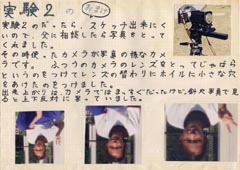 実験2の おまけ
実験2のだったら、スケッチ出来にく
いので、父に相談したら写真をとって
くれました。
その時使ったカメラが写真の様なカメ
ラです。ふつうのカメラのレンズをとってじゃばら
というのをつけてレンズの替わりにホイルに小さな穴
をあけたのをつけました。
出来上がりは、カメラではまっすぐだったけど、針や写真で見
ると上下反対に写っていました。